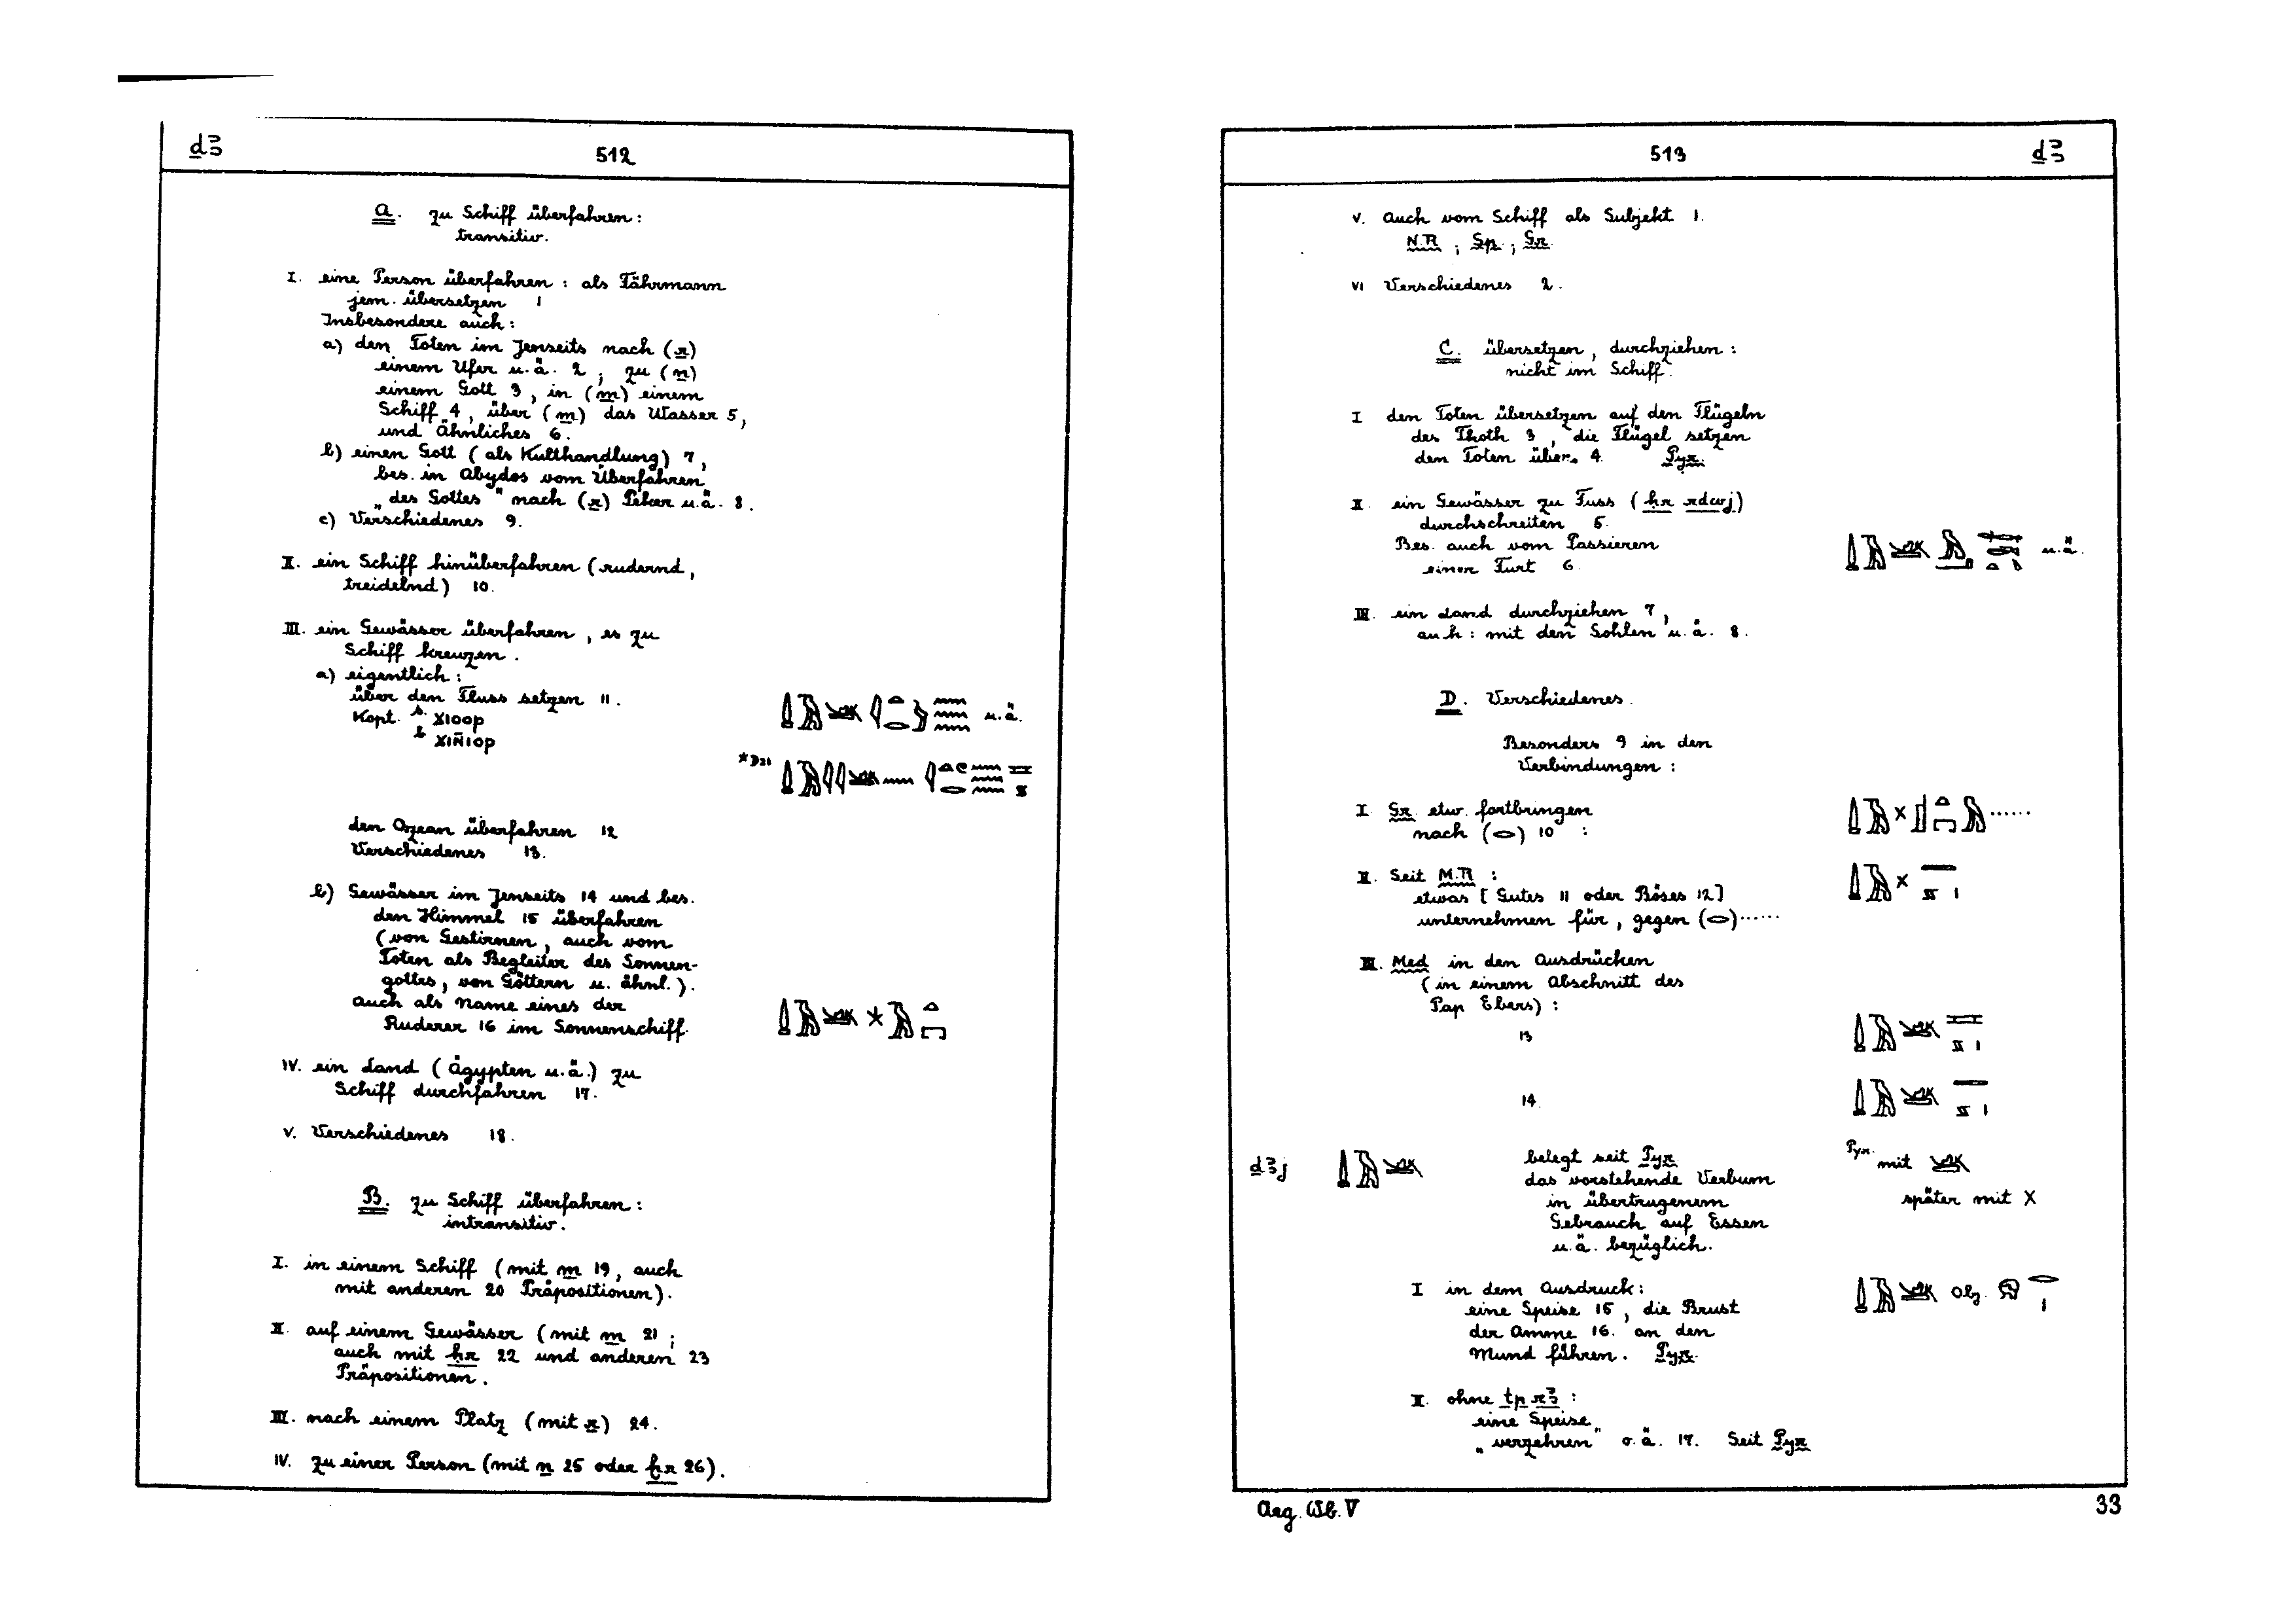 ḏꜣ
512
A. zu Schiff überfahren:
transitiv.
I. eine Person überfahren: als Fährmann
jem. übersetzen 1
Insbesondere auch:
a) den Toten im Jenseits nach (r)
einem Ufer u.ä. 2, zu (n)
einem Gott 3, in (m) einem
Schiff 4, über (m) das Wasser 5,
und Ähnliches 6.
b) einen Gott (als Kulthandlung) 7,
bes. in Abydos vom Überfahren
„des Gottes" nach (r) Peker u.ä. 8.
c) Verschiedenes 9.
II. ein Schiff hinüberfahren (rudernd,
treidelnd) 10.
III. ein Gewässer überfahren, es zu
Schiff kreuzen.
a) eigentlich:
über den Fluss setzen 11.
u.ä.
Kopt. S. ϫιοορ
B ϫιⲛ̄ιορ
*D21
den Ozean überfahren 12
Verschiedenes 13.
b) Gewässer im Jenseits 14 und bes.
den Himmel 15 überfahren
(von Gestirnen, auch vom
Toten als Begleiter des Sonnen-
gottes, von Göttern u. ähnl.).
auch als Name eines der
Ruderer 16 im Sonnenschiff.
IV. ein Land (Ägypten u.ä.) zu
Schiff durchfahren 17.
V. Verschiedenes 18.
B. zu Schiff überfahren:
intransitiv.
I. in einem Schiff (mit m 19, auch
mit anderen 20 Präpositionen).
II. auf einem Gewässer (mit m 21;
auch mit ḥr 22 und anderen 23
Präpositionen.
III. nach einem Platz (mit r) 24.
IV. zu einer Person (mit n 25 oder ẖr 26).
513
ḏꜣ
V. Auch vom Schiff als Subjekt 1.
NR; Sp; Gr.
VI Verschiedenes 2.
C. übersetzen, durchziehen:
nicht im Schiff.
I den Toten übersetzen auf den Flügeln
des Thoth 3, die Flügel setzen
den Toten über. 4. Pyr.
II ein Gewässer zu Fuss (ḥr rdwj)
durchschreiten 5.
Bes. auch vom Passieren
einer Furt 6.
u.ä.
III. ein Land durchziehen 7,
auch: mit den Sohlen u.ä. 8.
D. Verschiedenes.
Besonders 9 in den
Verbindungen:
I Gr. etw. fortbringen
nach (𓂋) 10 :
......
II. Seit M.R:
etwas [Gutes 11 oder Böses 12]
unternehmen für, gegen (𓂋)......
III. Med in den Ausdrücken
(in einem Abschnitt des
Pap Ebers):
13
14.
ḏꜣj
belegt seit Pyr
das vorstehende Verbum
in übertragenem
Gebrauch auf Essen
u.ä. bezüglich.
Pyr. mit
später mit X
I in dem Ausdruck:
eine Speise 15, die Brust
der Amme 16. an den
Mund führen. Pyr.
Obj.
II. ohne tp rꜣ:
eine Speise
„verzehren" o.ä. 17. Seit Pyr
Aeg. Wb. V
33